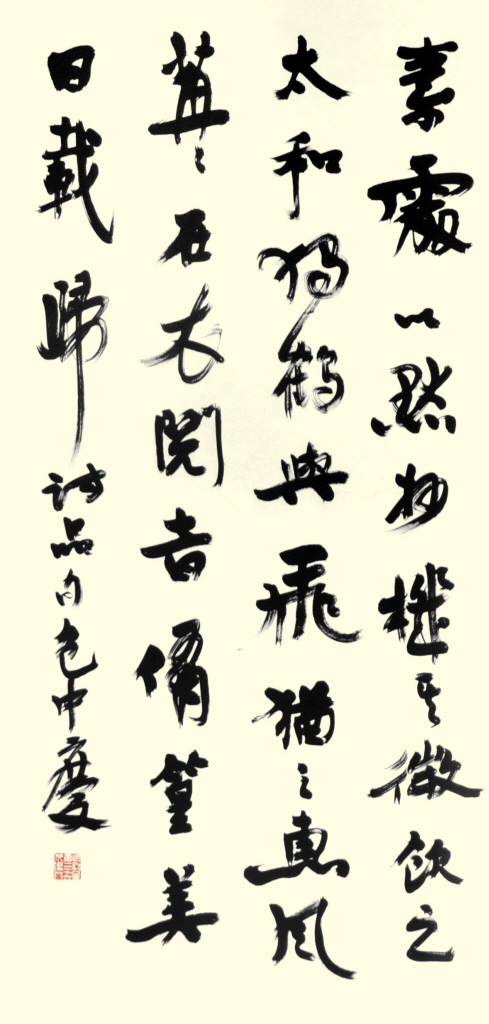 素處以默妙機其微飲之
太和獨鶴與飛猶之惠風
苒〻在衣閱音脩篁美
曰載歸 詩品句